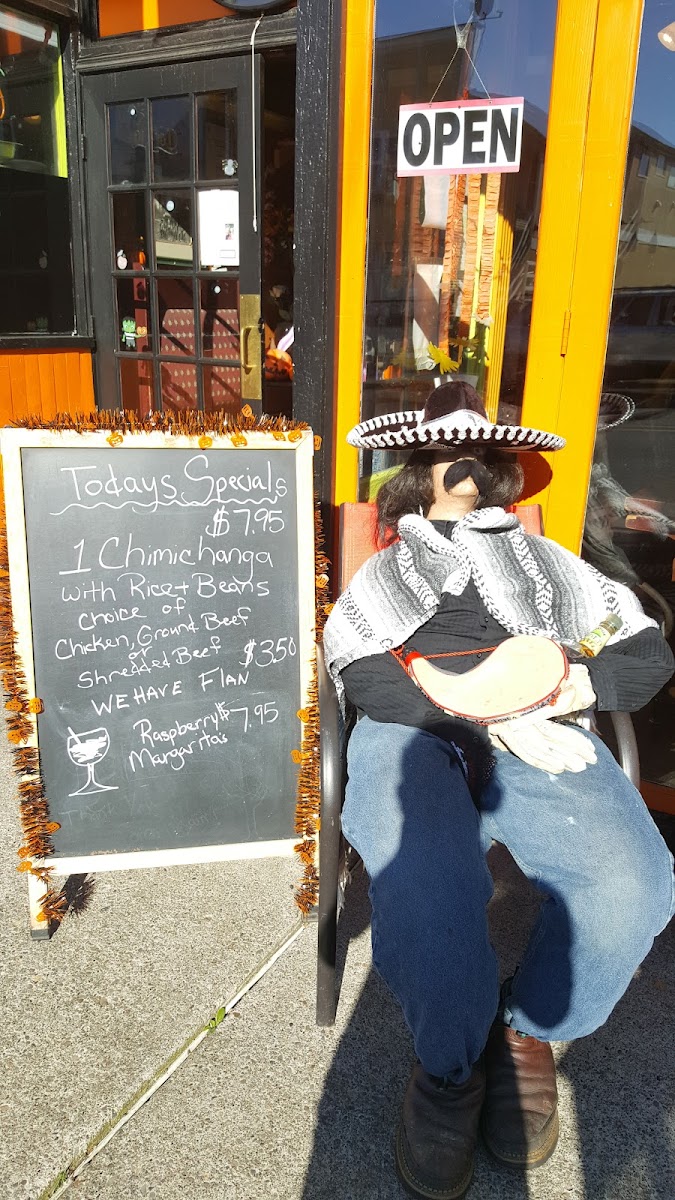 OPEN
Todays Specials
$7.95
1 Chimichanga
with Rice + Beans
choice of
Chicken, Ground Beef
or
Shredded Beef
$3.50
WE HAVE FlAN
Raspberry $7.95
Margarita's